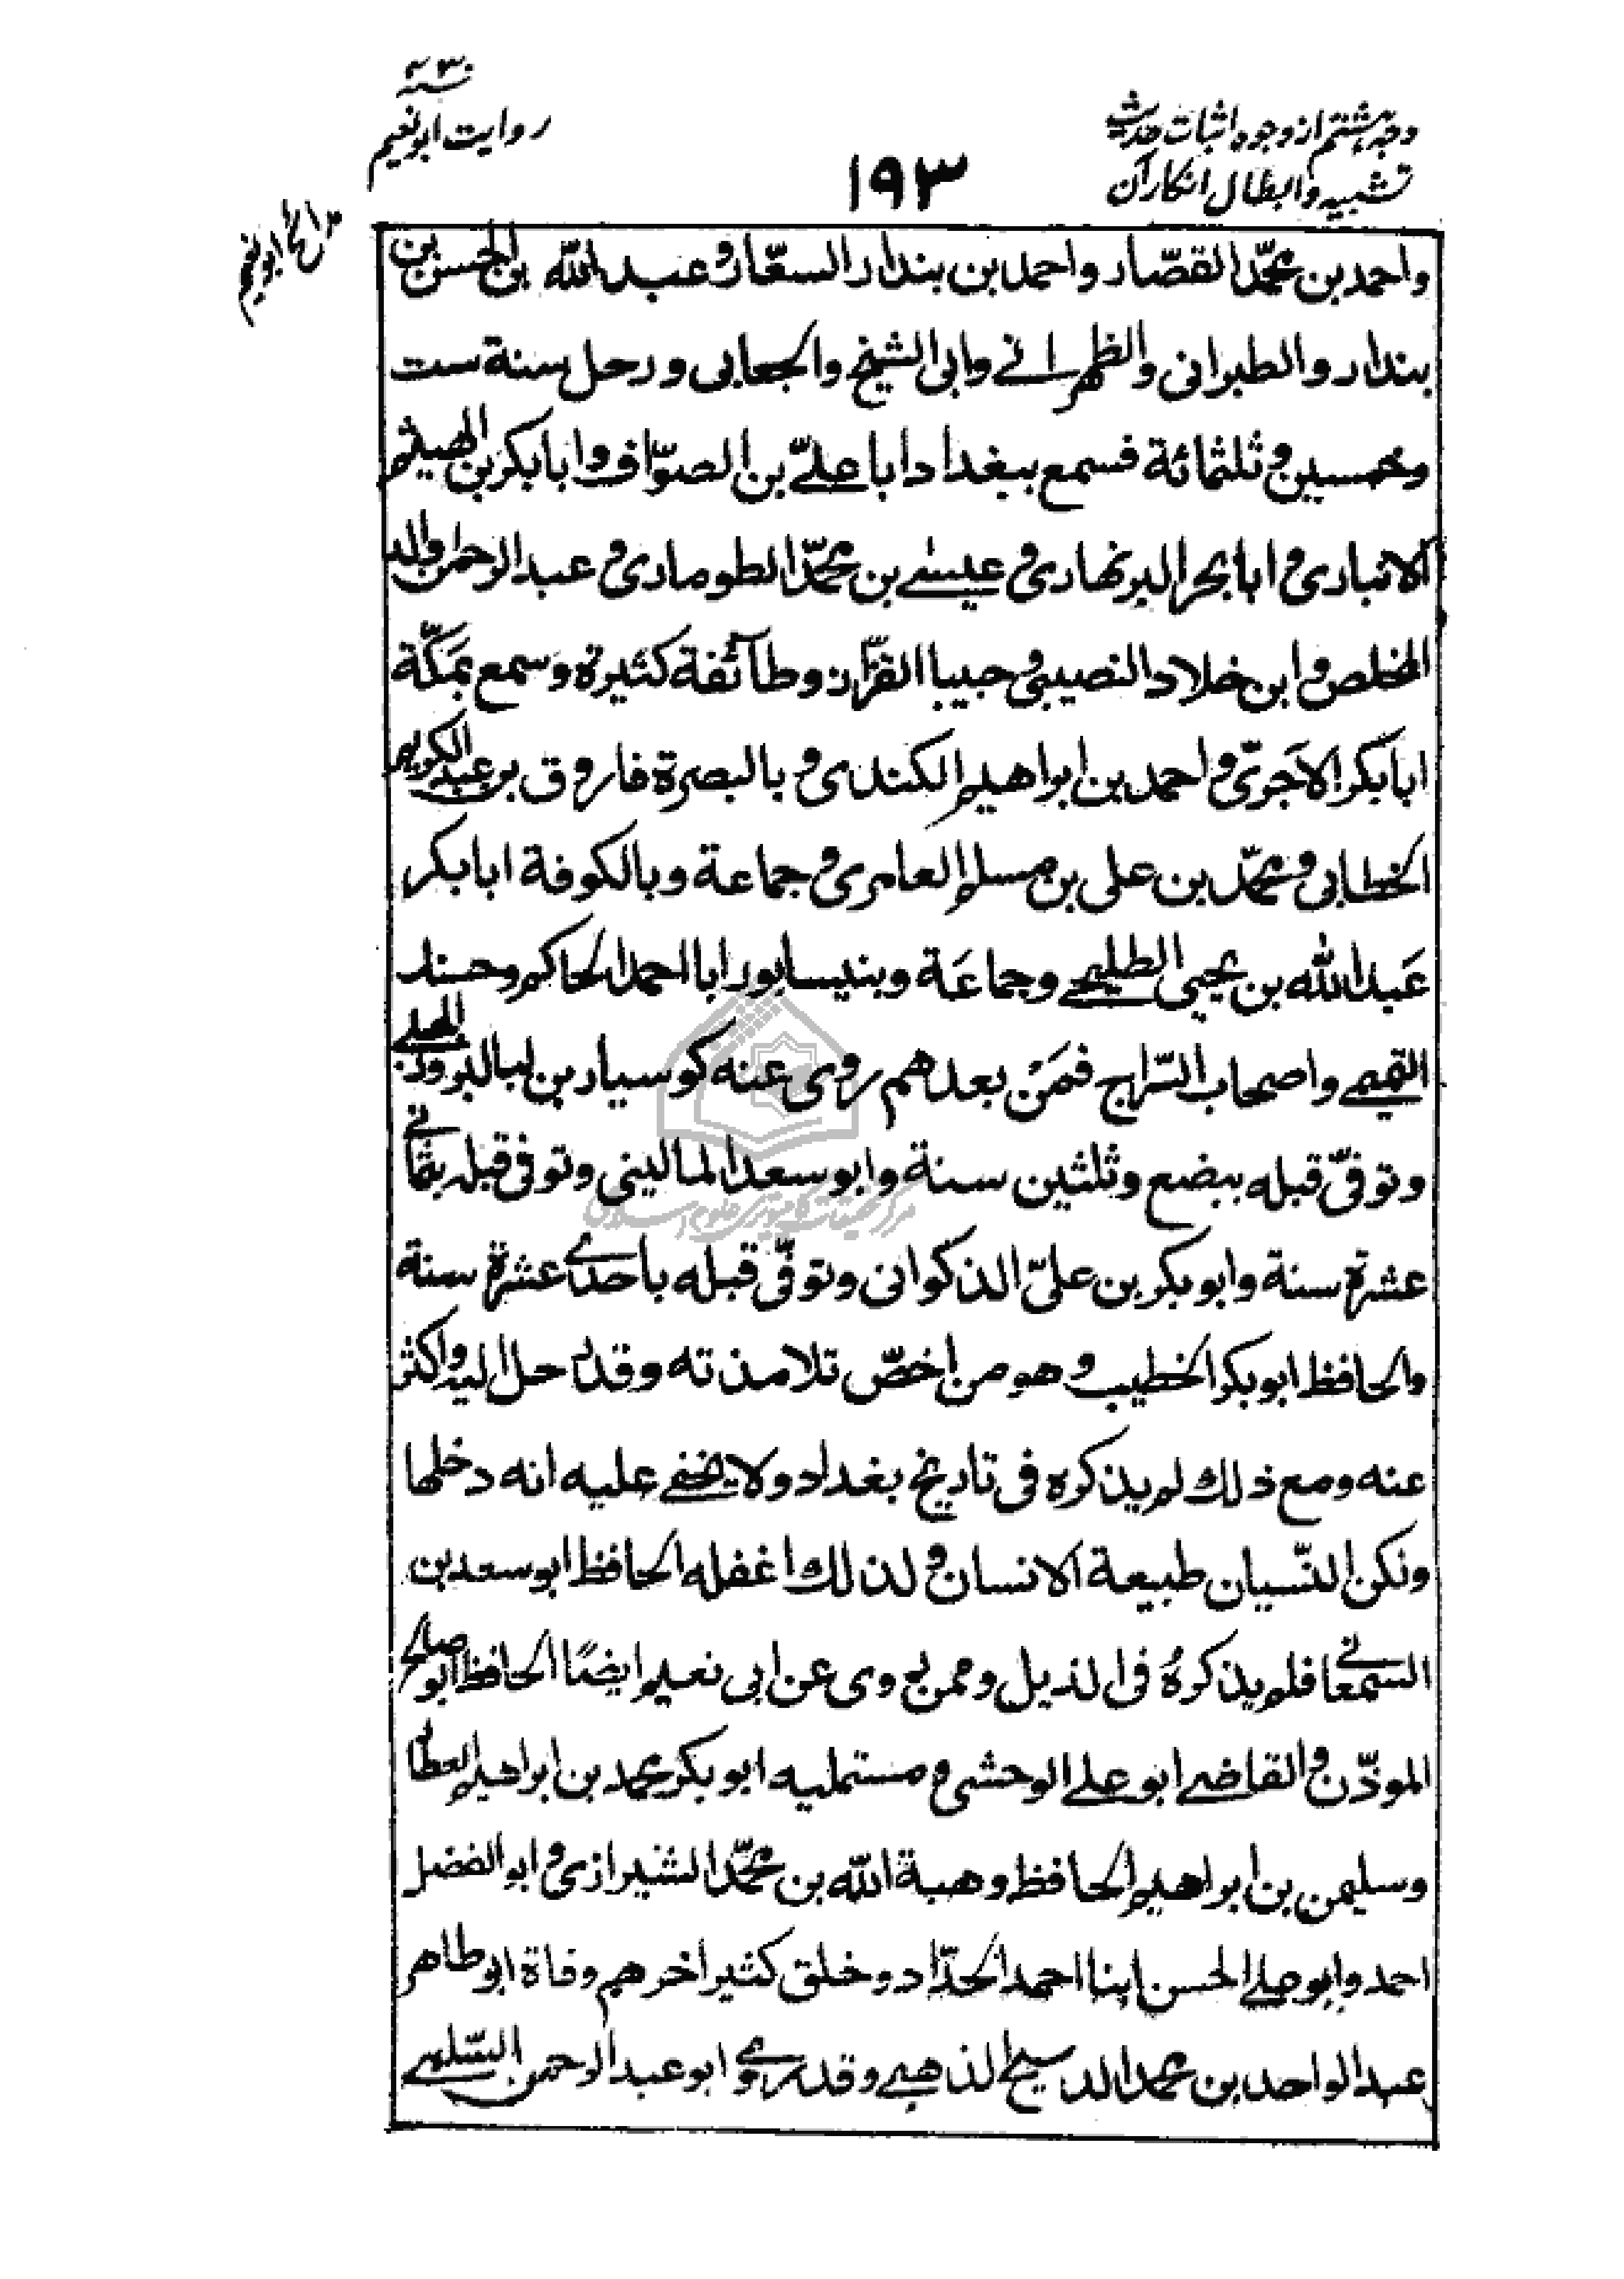 وجه هشتم از وجوه اثبات حدیث
تشبیه و ابطال انکار آن
۱۹۳
روایت ابو نعیم
مدائح ابو نعیم
واحمد بن محمّد القصّار واحمد بن بندار السعّار وعبد اللّه بن الحسن بن
بندار والطبرانی والظهرانے وابی الشیخ والجعابی ورحل سنة ست
وخمسین وثلثمائة فسمع ببغداد ابا علیّ بن الصوّاف وابا بکر بن الهیثم
الانباری وابا بحر البربهاری وعیسے بن محمّد الطوماری وعبد الرحمن والد
المخلص وابن خلاد النصیبی وحبیبا القزّاز وطآئفة کثیرة وسمع بمَکّة
ابا بکر الاجَریّ واحمد بن ابراهیم الکندی وبالبصرة فاروق بن عبد الکریم
الخطابی ومحمّد بن علی بن مسلم العامری وجماعة وبالکوفة ابا بکر
عَبد اللّه بن یحیی الطلیحے وجماعَة وبنیسابور ابا احمد الحاکم وحسنك
التمیمے واصحاب السّراج فمَنْ بعدهم روی عنه کوسیار بن لیالیروز الجیلے
وتوفّی قبله ببضع وثلثین سنة وابو سعد المالینی وتوفی قبله بثمانے
عشرة سنة وابو بکر بن علیّ الذکوانی وتوفّی قبله باحدے عشرة سنة
والحافظ ابو بکر الخطیب وهو من اخصّ تلامذته وقد رحل الیه واکثر
عنه ومع ذلك لم یذکره فی تاریخ بغداد ولا یخفے علیه انه دخلها
ولکن النّسیان طبیعة الانسان ولذلك اغفله الحافظ ابو سعد بن
السمعانے فلم یذکرهُ فی الذیل وممن روی عن ابی نعیم ایضًا الحافظ ابو صالح
الموذّن والقاضے ابو علے الوحشی ومستملیه ابو بکر محمد بن ابراهیم العطار
وسلیمن بن ابراهیم الحافظ وهبة اللّه بن محمّد الشیرازی وابو الفضل
احمد وابو علے الحسن ابنا احمد الحدّاد وخلق کثیر اخرهم وفاة ابو طاهر
عبد الواحد بن محمد الدسیج الذهبے وقد روے ابو عبد الرحمن السّلمے
مرکز تحقیقات کامپیوتری علوم اسلامی